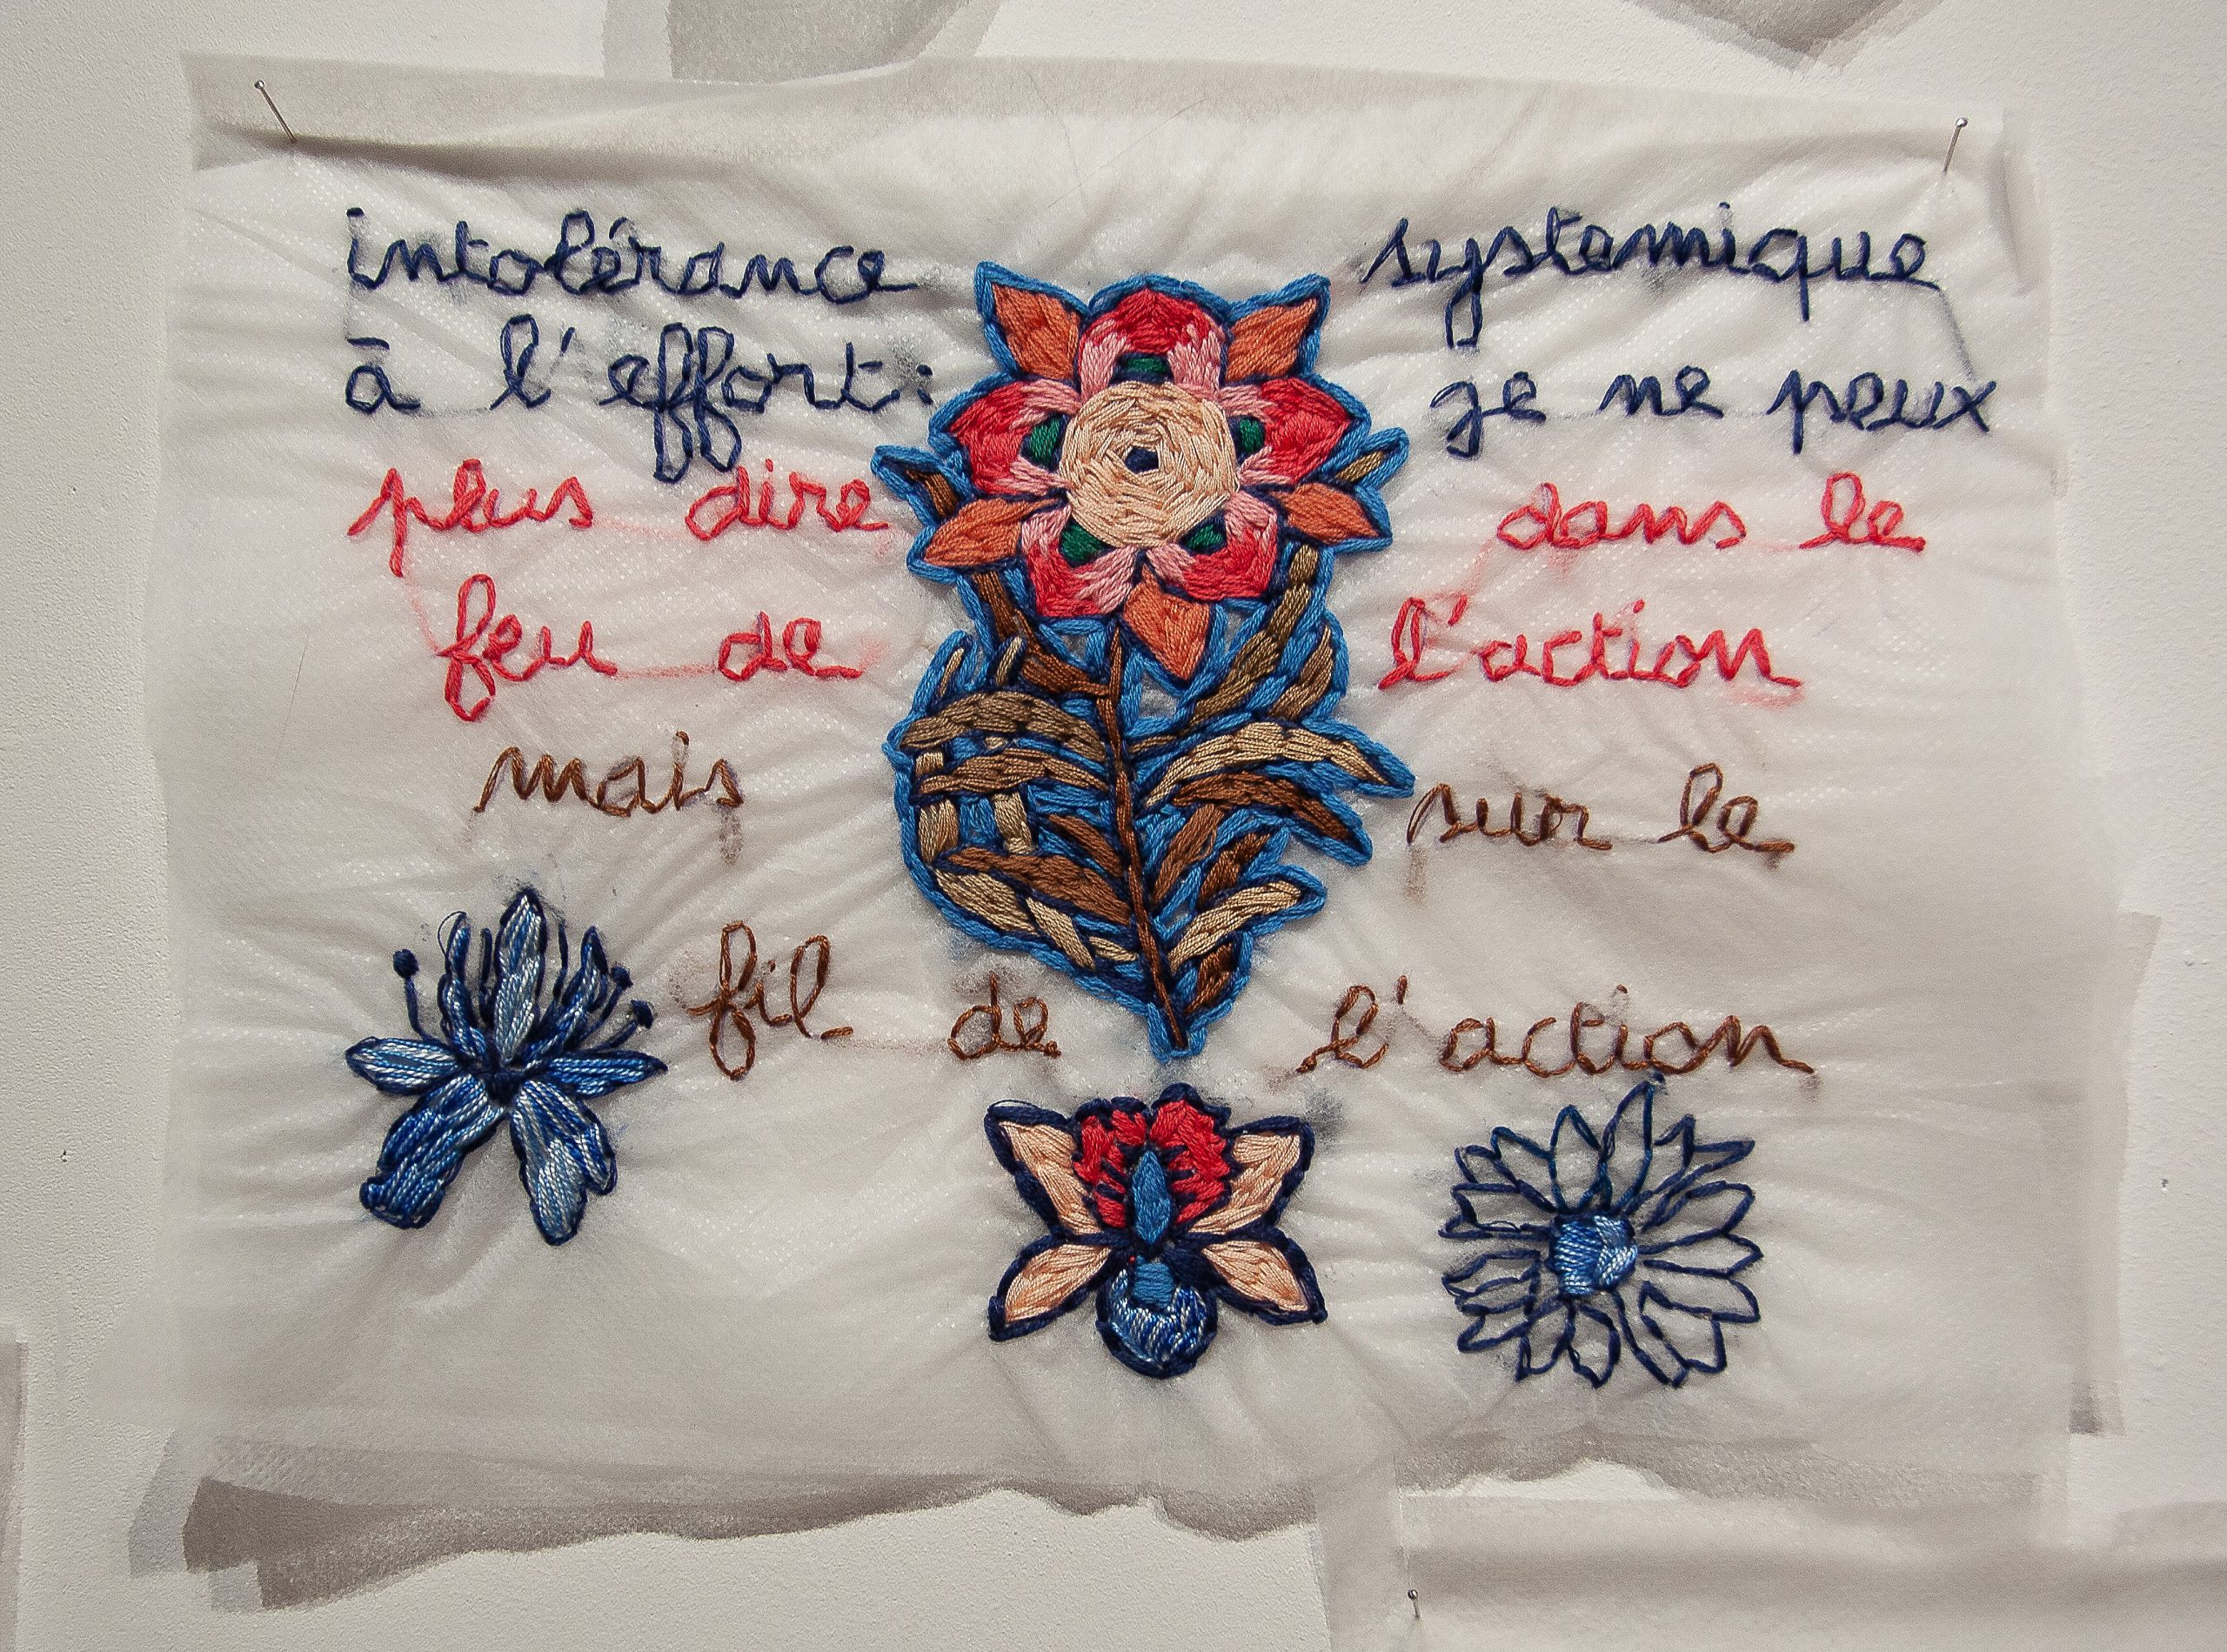 intolérance systemique
à l'effort: je ne peux
plus dire dans le
feu de l'action
mais sur le
fil de l'action